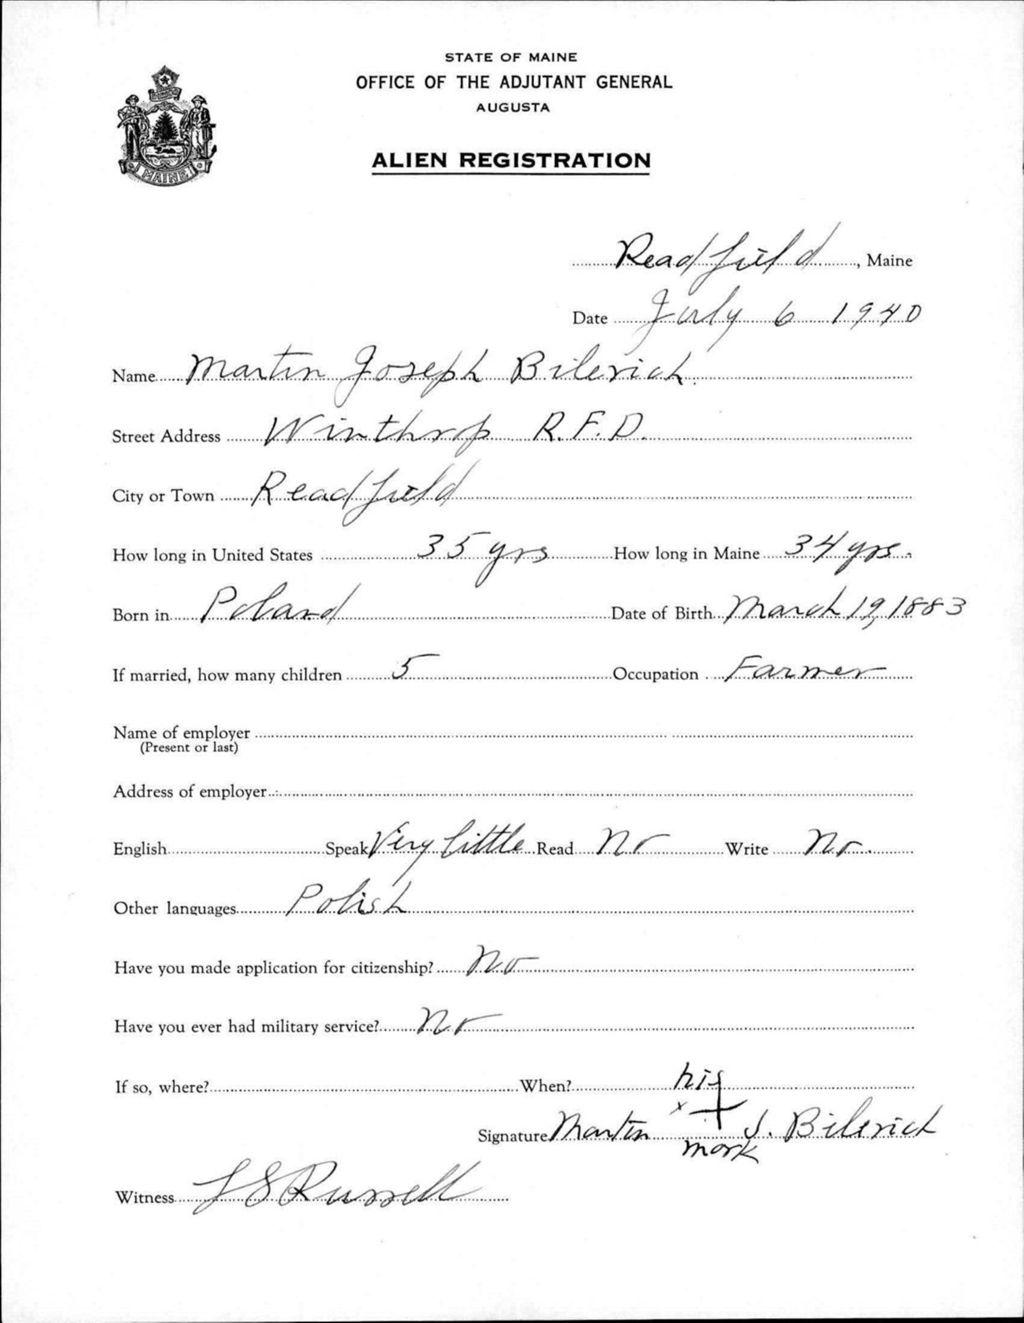 STATE OF MAINE
OFFICE OF THE ADJUTANT GENERAL
AUGUSTA
ALIEN REGISTRATION
MAINE
Readfield, Maine
Date July 6 1940
Name Martin Joseph Bilevich
Street Address Winthrop R.F.D.
City or Town Readfield
How long in United States 35 yrs How long in Maine 34 yrs.
Born in Poland Date of Birth March 19, 1883
If married, how many children 5 Occupation Farmer
Name of employer
(Present or last)
Address of employer
English Speak Very little Read No Write No.
Other languages Polish
Have you made application for citizenship? No
Have you ever had military service? No
If so, where? When?
his
Signature Martin x + J. Bilevich
mark
Witness L S Russell